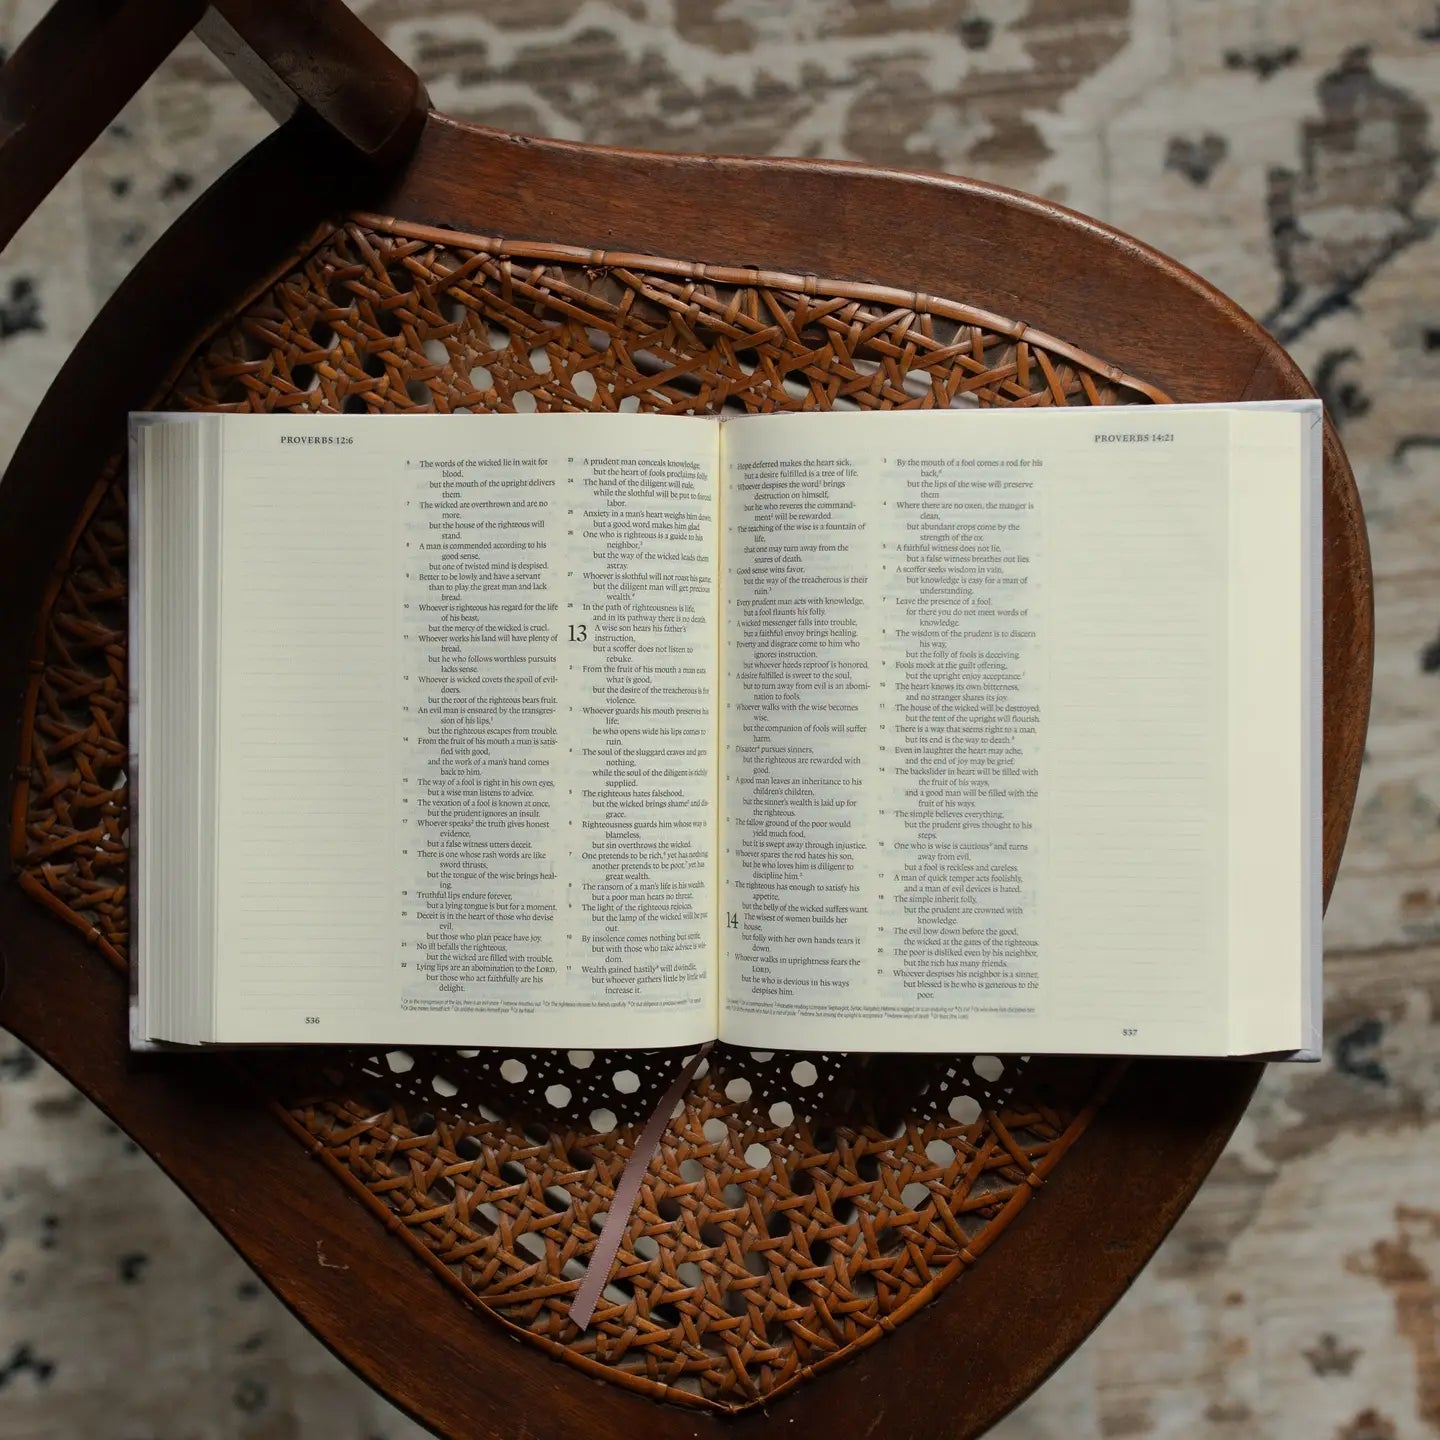 PROVERBS 12:6
6 The words of the wicked lie in wait for
blood,
but the mouth of the upright delivers
them.
7 The wicked are overthrown and are no
more,
but the house of the righteous will
stand.
8 A man is commended according to his
good sense,
but one of twisted mind is despised.
9 Better to be lowly and have a servant
than to play the great man and lack
bread.
10 Whoever is righteous has regard for the life
of his beast,
but the mercy of the wicked is cruel.
11 Whoever works his land will have plenty of
bread,
but he who follows worthless pursuits
lacks sense.
12 Whoever is wicked covets the spoil of evil-
doers,
but the root of the righteous bears fruit.
13 An evil man is ensnared by the transgres-
sion of his lips,1
but the righteous escapes from trouble.
14 From the fruit of his mouth a man is satis-
fied with good,
and the work of a man's hand comes
back to him.
15 The way of a fool is right in his own eyes,
but a wise man listens to advice.
16 The vexation of a fool is known at once,
but the prudent ignores an insult.
17 Whoever speaks2 the truth gives honest
evidence,
but a false witness utters deceit.
18 There is one whose rash words are like
sword thrusts,
but the tongue of the wise brings heal-
ing.
19 Truthful lips endure forever,
but a lying tongue is but for a moment.
20 Deceit is in the heart of those who devise
evil,
but those who plan peace have joy.
21 No ill befalls the righteous,
but the wicked are filled with trouble.
22 Lying lips are an abomination to the LORD,
but those who act faithfully are his
delight.
23 A prudent man conceals knowledge,
but the heart of fools proclaims folly.
24 The hand of the diligent will rule,
while the slothful will be put to forced
labor.
25 Anxiety in a man's heart weighs him down,
but a good word makes him glad.
26 One who is righteous is a guide to his
neighbor,3
but the way of the wicked leads them
astray.
27 Whoever is slothful will not roast his game,
but the diligent man will get precious
wealth.4
28 In the path of righteousness is life,
and in its pathway there is no death.
13 A wise son hears his father's
instruction,
but a scoffer does not listen to
rebuke.
2 From the fruit of his mouth a man eats
what is good,
but the desire of the treacherous is for
violence.
3 Whoever guards his mouth preserves his
life;
he who opens wide his lips comes to
ruin.
4 The soul of the sluggard craves and gets
nothing,
while the soul of the diligent is richly
supplied.
5 The righteous hates falsehood,
but the wicked brings shame5 and dis-
grace.
6 Righteousness guards him whose way is
blameless,
but sin overthrows the wicked.
7 One pretends to be rich,6 yet has nothing;
another pretends to be poor,7 yet has
great wealth.
8 The ransom of a man's life is his wealth,
but a poor man hears no threat.
9 The light of the righteous rejoices,
but the lamp of the wicked will be put
out.
10 By insolence comes nothing but strife,
but with those who take advice is wis-
dom.
11 Wealth gained hastily8 will dwindle,
but whoever gathers little by little will
increase it.
536
PROVERBS 14:21
Hope deferred makes the heart sick,
but a desire fulfilled is a tree of life.
Whoever despises the word1 brings
destruction on himself,
but he who reveres the command-
ment2 will be rewarded.
The teaching of the wise is a fountain of
life,
that one may turn away from the
snares of death.
Good sense wins favor,
but the way of the treacherous is their
ruin.3
Every prudent man acts with knowledge,
but a fool flaunts his folly.
A wicked messenger falls into trouble,
but a faithful envoy brings healing.
Poverty and disgrace come to him who
ignores instruction,
but whoever heeds reproof is honored.
A desire fulfilled is sweet to the soul,
but to turn away from evil is an abomi-
nation to fools.
Whoever walks with the wise becomes
wise,
but the companion of fools will suffer
harm.
Disaster4 pursues sinners,
but the righteous are rewarded with
good.
A good man leaves an inheritance to his
children's children,
but the sinner's wealth is laid up for
the righteous.
The fallow ground of the poor would
yield much food,
but it is swept away through injustice.
Whoever spares the rod hates his son,
but he who loves him is diligent to
discipline him.5
The righteous has enough to satisfy his
appetite,
but the belly of the wicked suffers want.
14 The wisest of women builds her
house,
but folly with her own hands tears it
down.
2 Whoever walks in uprightness fears the
LORD,
but he who is devious in his ways
despises him.
3 By the mouth of a fool comes a rod for his
back,6
but the lips of the wise will preserve
them.
4 Where there are no oxen, the manger is
clean,
but abundant crops come by the
strength of the ox.
5 A faithful witness does not lie,
but a false witness breathes out lies.
6 A scoffer seeks wisdom in vain,
but knowledge is easy for a man of
understanding.
7 Leave the presence of a fool,
for there you do not meet words of
knowledge.
8 The wisdom of the prudent is to discern
his way,
but the folly of fools is deceiving.
9 Fools mock at the guilt offering,
but the upright enjoy acceptance.7
10 The heart knows its own bitterness,
and no stranger shares its joy.
11 The house of the wicked will be destroyed,
but the tent of the upright will flourish.
12 There is a way that seems right to a man,
but its end is the way to death.8
13 Even in laughter the heart may ache,
and the end of joy may be grief.
14 The backslider in heart will be filled with
the fruit of his ways,
and a good man will be filled with the
fruit of his ways.
15 The simple believes everything,
but the prudent gives thought to his
steps.
16 One who is wise is cautious9 and turns
away from evil,
but a fool is reckless and careless.
17 A man of quick temper acts foolishly,
and a man of evil devices is hated.
18 The simple inherit folly,
but the prudent are crowned with
knowledge.
19 The evil bow down before the good,
the wicked at the gates of the righteous.
20 The poor is disliked even by his neighbor,
but the rich has many friends.
21 Whoever despises his neighbor is a sinner,
but blessed is he who is generous to the
poor.
537